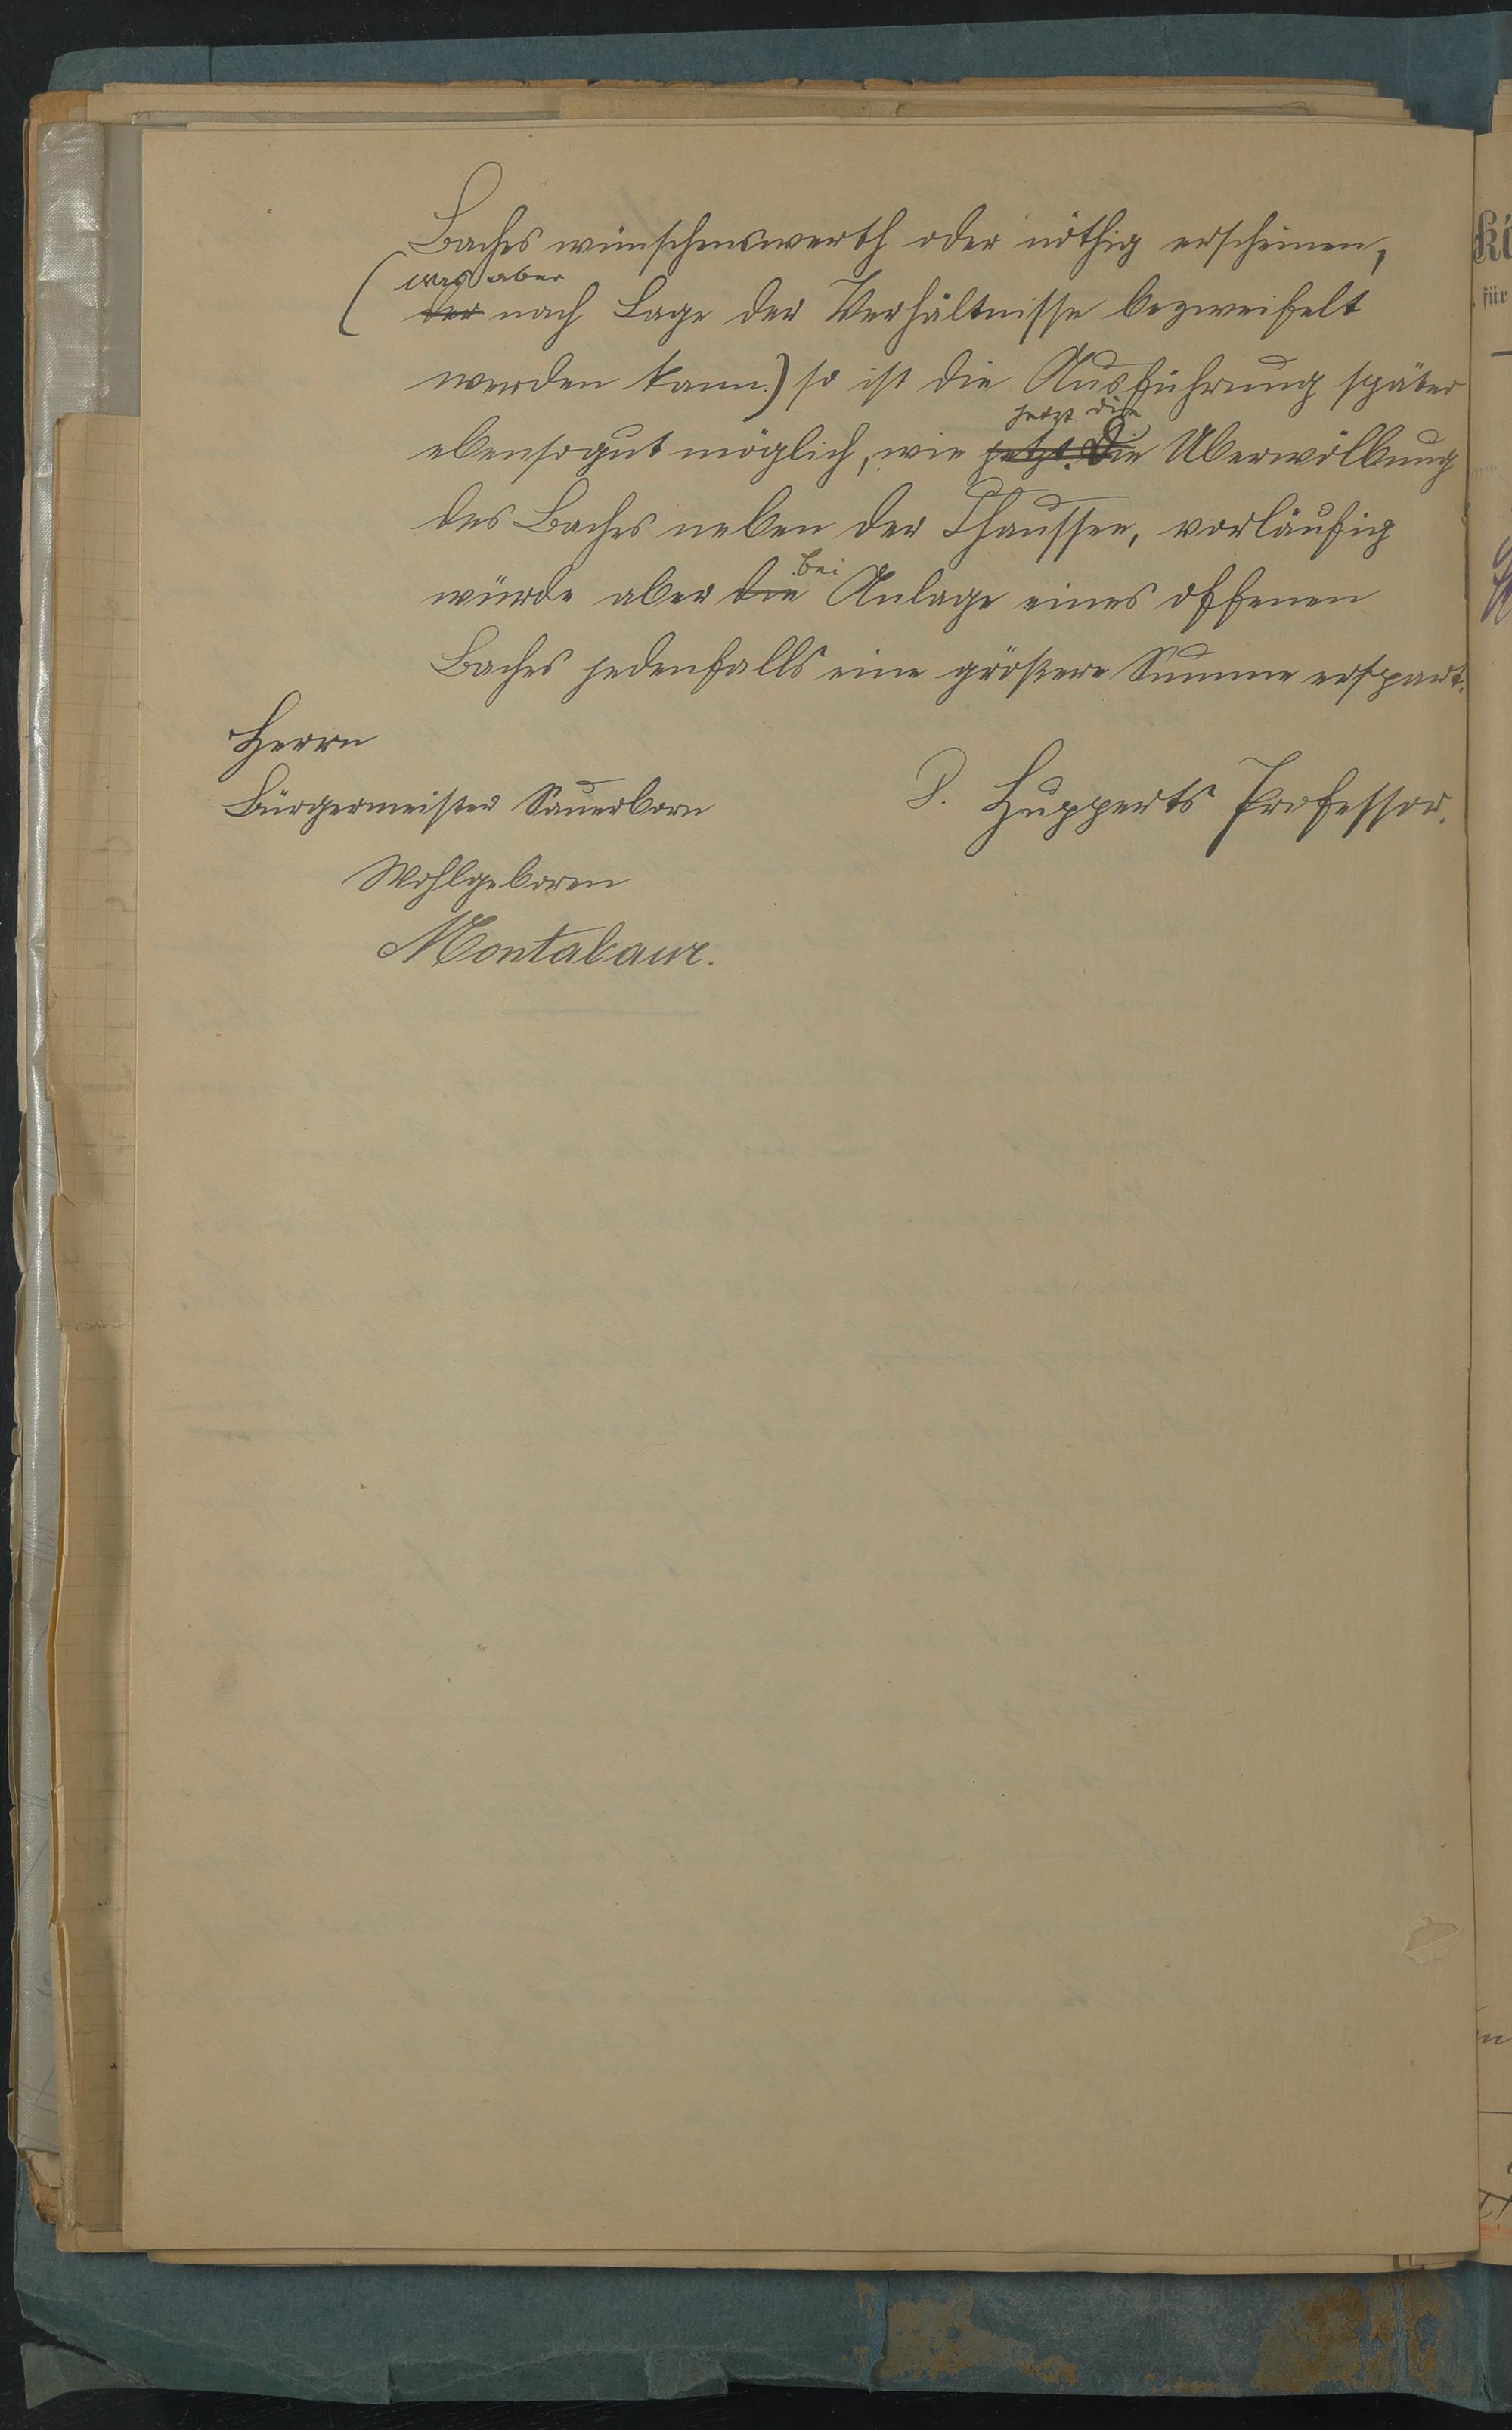 Baches wünschenswerth oder nöthig erscheinen,
was aber
(der nach Lage der Verhältnisse bezweifelt
werden kann.) so ist die Ausführung später
jetzt die
ebensogut möglich, wie jetzt. Die Überwölbung
des Baches neben der Chaussee, vorläufig
bei
würde aber die Anlage eines offenen
Baches jedenfalls eine größere Summe erspart.
Herrn
Bürgermeister Sauerborn
P. Hupperts Professor.
Wohlgeboren
Montabaur.
für